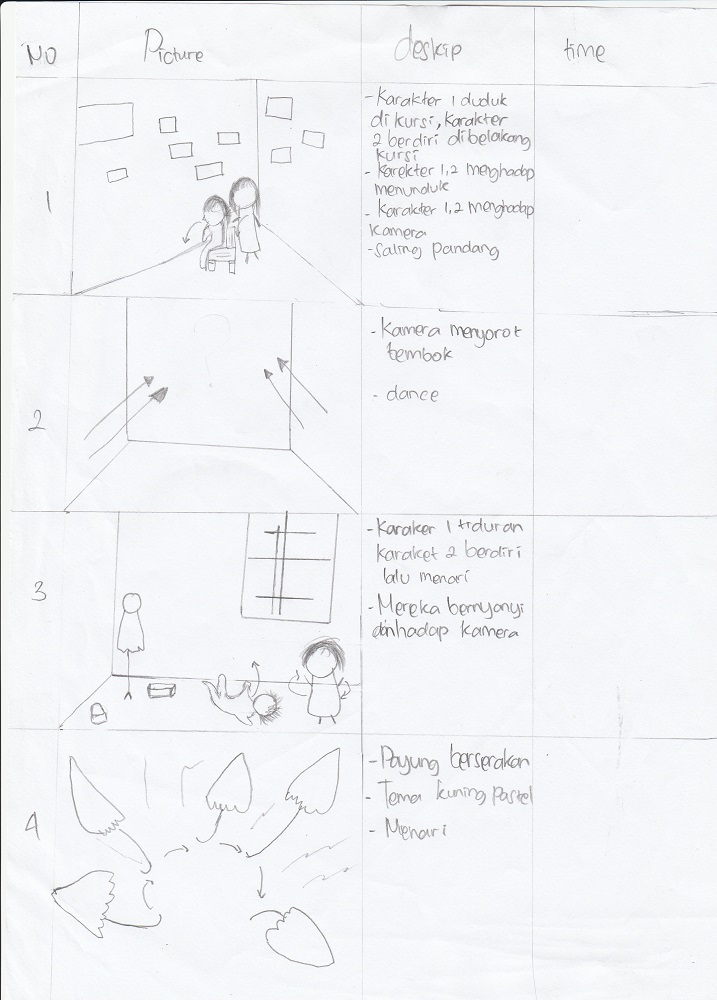 NO Picture deskip time
1
- Karakter 1 duduk
di kursi, karakter
2 berdiri dibelakang
kursi
- Karekter 1,2 menghadap
menunduk
- Karakter 1,2 menghadap
kamera
- Saling pandang
2
- Kamera menyorot
tembok
- dance
3
- Karaker 1 tiduran
karaket 2 berdiri
lalu menari
- Mereka bernyanyi
hadap kamera
4
- Payung berserakan
- Tema kuning Pastel
- Menari